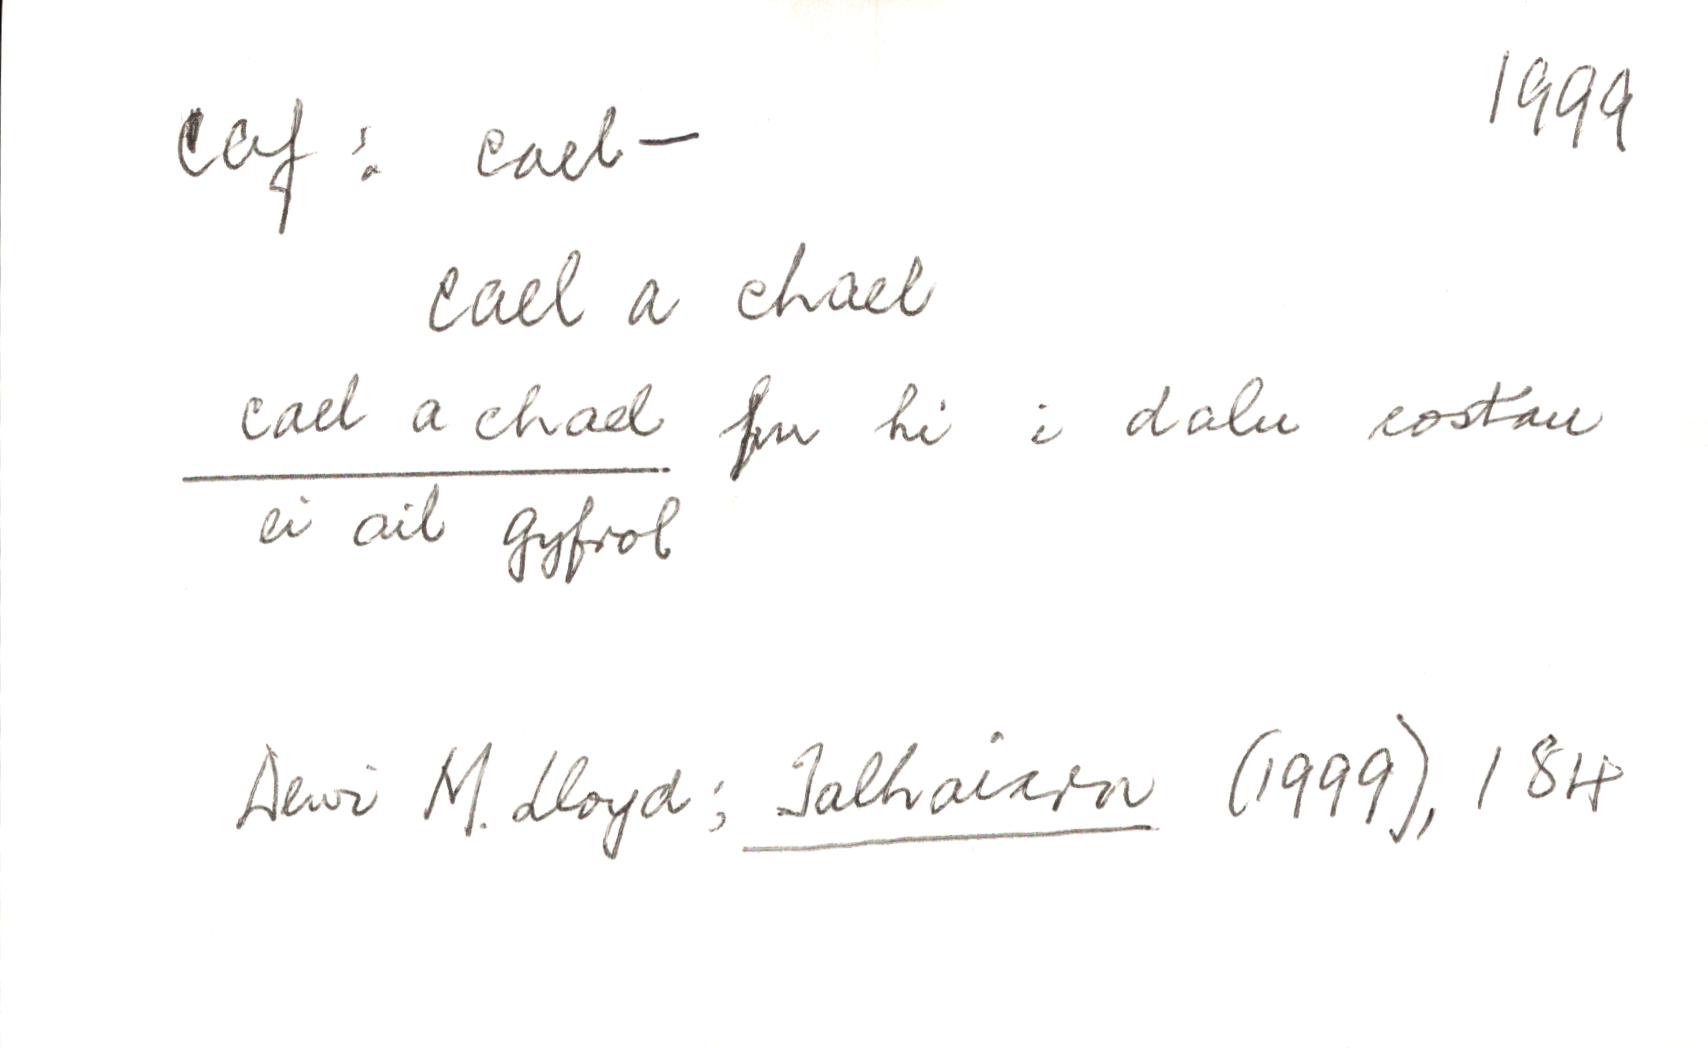 1999
caf : cael —
cael a chael
cael a chael fu hi i dalu costau
ei ail gyfrol
Dewi M. Lloyd; Talhaiarn (1999), 184